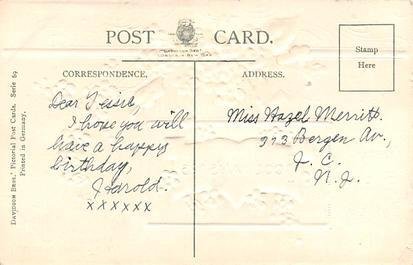 POST CARD.
DAVIDSON BROS.
LONDON & NEW YORK
Stamp
Here
CORRESPONDENCE.
ADDRESS.
Dear
I hope you will
have a happy
birthday,
Harold.
xxxxxx
Miss Hazel Merritt.
273 Bergen Av.,
J. C.
N. J.
Davidson Bros.' Pictorial Post Cards. Serie 69
Printed in Germany.